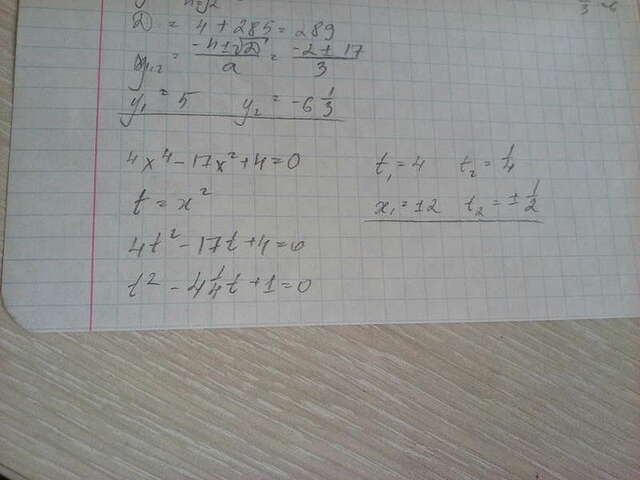 D = 4 + 285 = 289
y₁,₂ = (-k ± √D)/a = (-2 ± 17)/3
y₁ = 5 y₂ = -6 1/3
4x⁴ - 17x² + 4 = 0
t = x²
4t² - 17t + 4 = 0
t² - 4 1/4 t + 1 = 0
t₁ = 4 t₂ = 1/4
x₁ = ±2 t₂ = ± 1/2